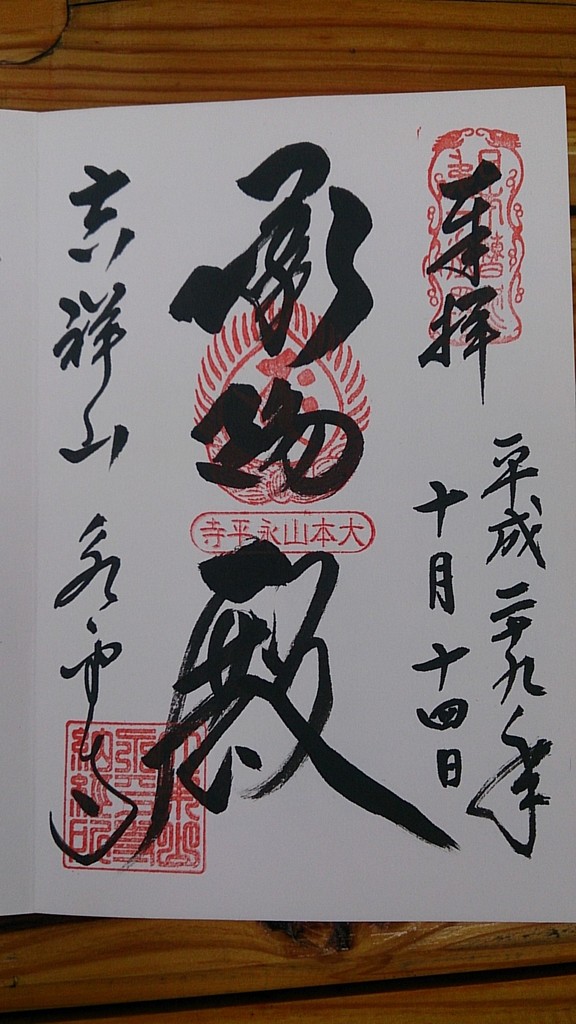 奉拝
平成二十九年
十月十四日
承陽殿
大本山永平寺
吉祥山 永平寺